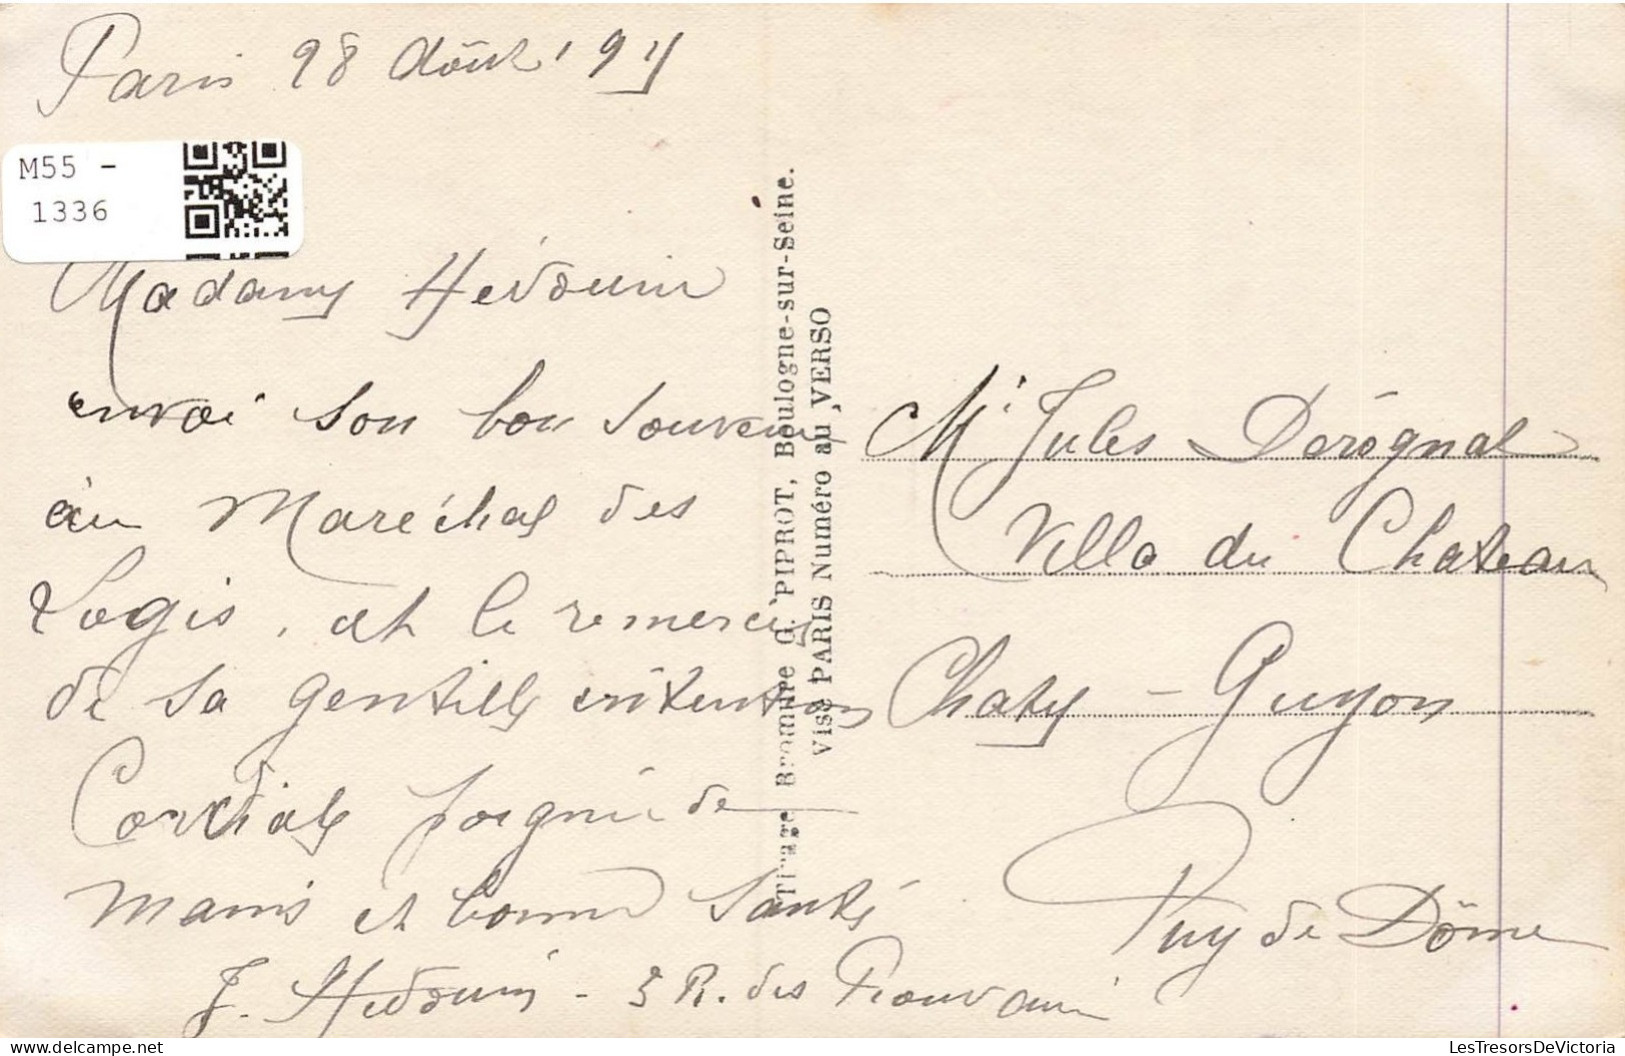 Paris 28 Août 191
M55 -
1336
Madame Hédouin
envoi son bon souvenir
au Maréchal des
Logis, et le remercie
de sa gentille intention
Cordiale poignée de
mains et bonne santé
J. Hédouin - 3 R. des Prouvaires
Tirage Bromure G. PIPROT, Boulogne-sur-Seine.
Visé PARIS Numéro au VERSO
Mr Jules Dérégnal
Villa du Chateau
Chaty - Guyon
Puy de Dôme
LesTresorsDeVictoria.com